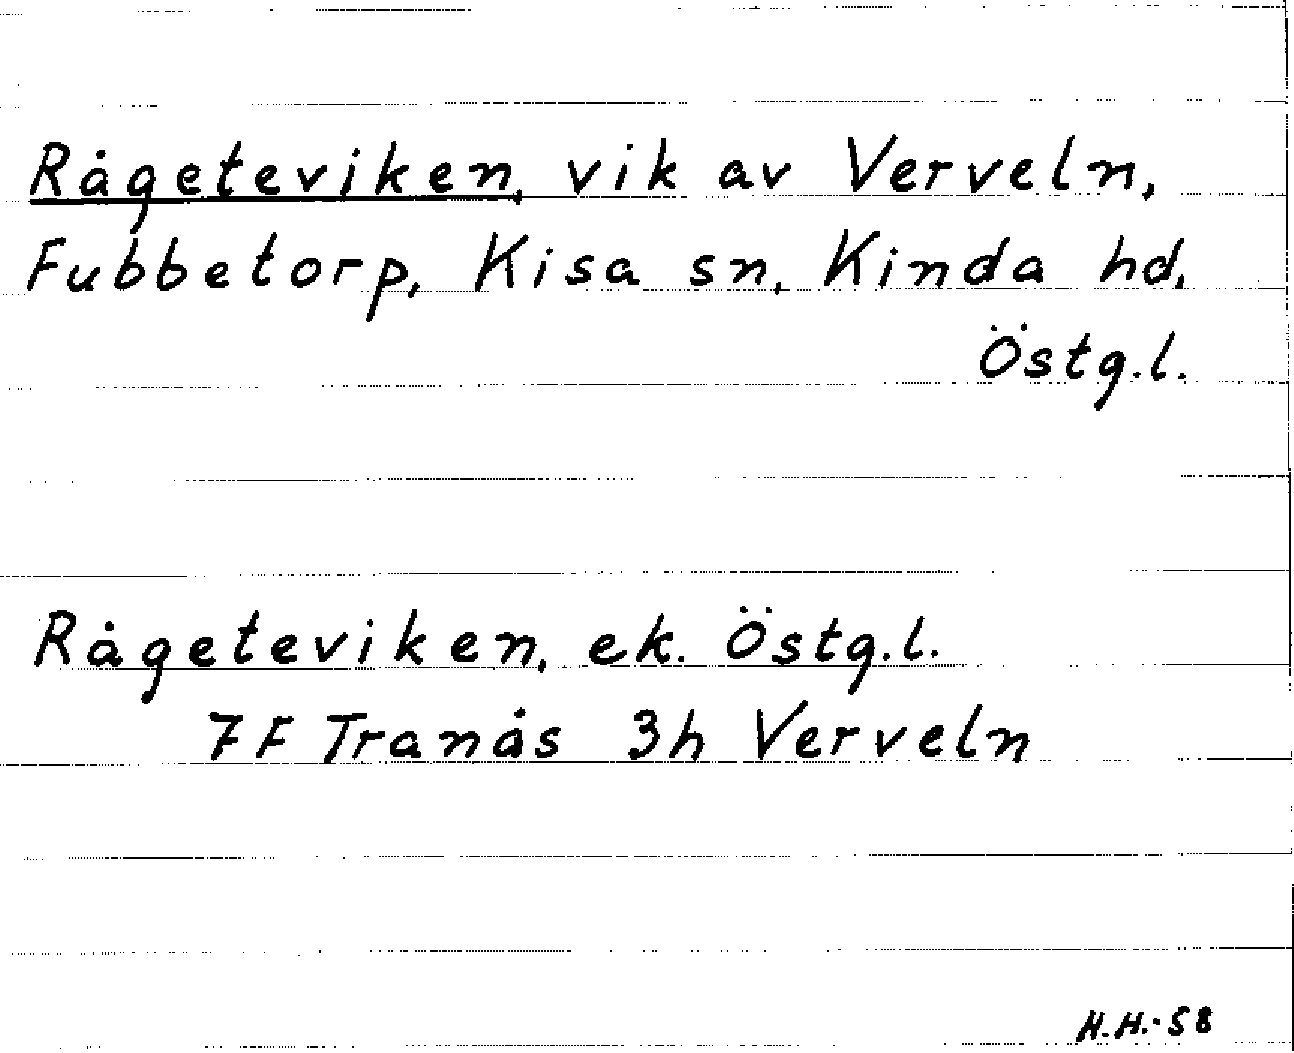 Rågeteviken, vik av Verveln,
Fubbetorp, Kisa sn, Kinda hd,
Östg.l.
Rågeteviken, ek. Östg.l.
7F Tranås 3h Verveln
H.H.-58